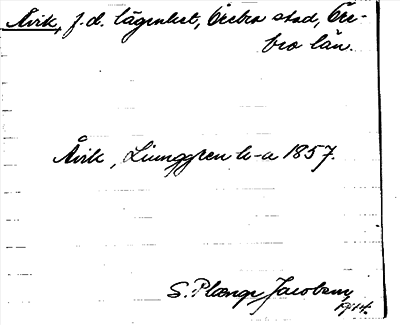 Åvik, f.d. lägenhet, Örebro stad, Öre-
bro län.
Åvik, Ljunggren h-a 1857.
S. Plænge Jacobson